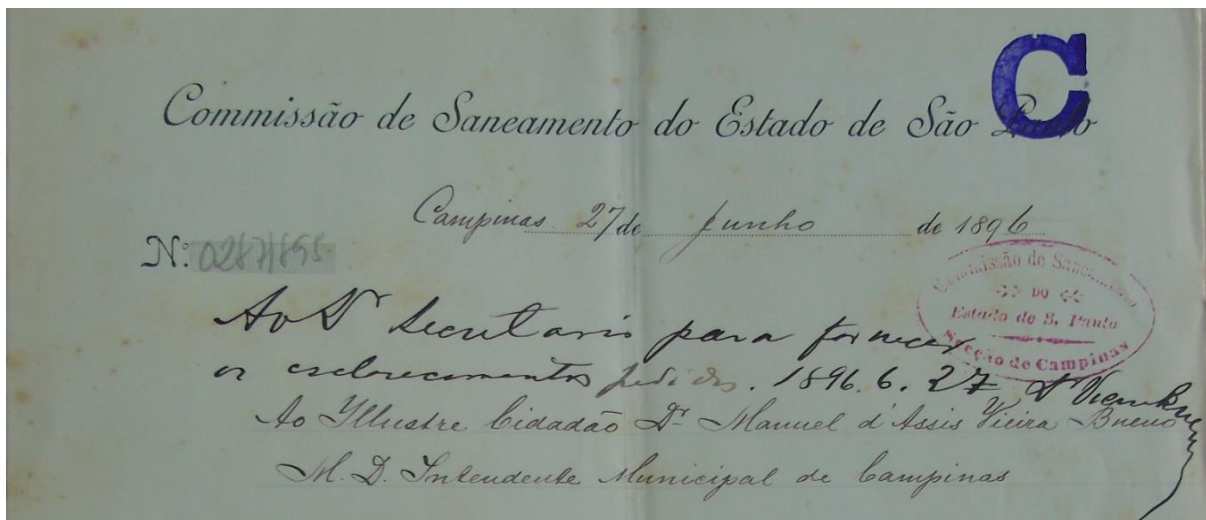 C
Commissão de Saneamento do Estado de São Paulo
Campinas 27 de Junho de 1896
N.º
Commissão de Saneamento
DO
Estado de S. Paulo
Secção de Campinas
Ao Dr Secretario para fornecer
os esclarecimentos pedidos. 1896.6.27 Dr Vieira Bueno
Ao Illustre Cidadão Dr. Manuel d'Assis Vieira Bueno
M. D. Intendente Municipal de Campinas